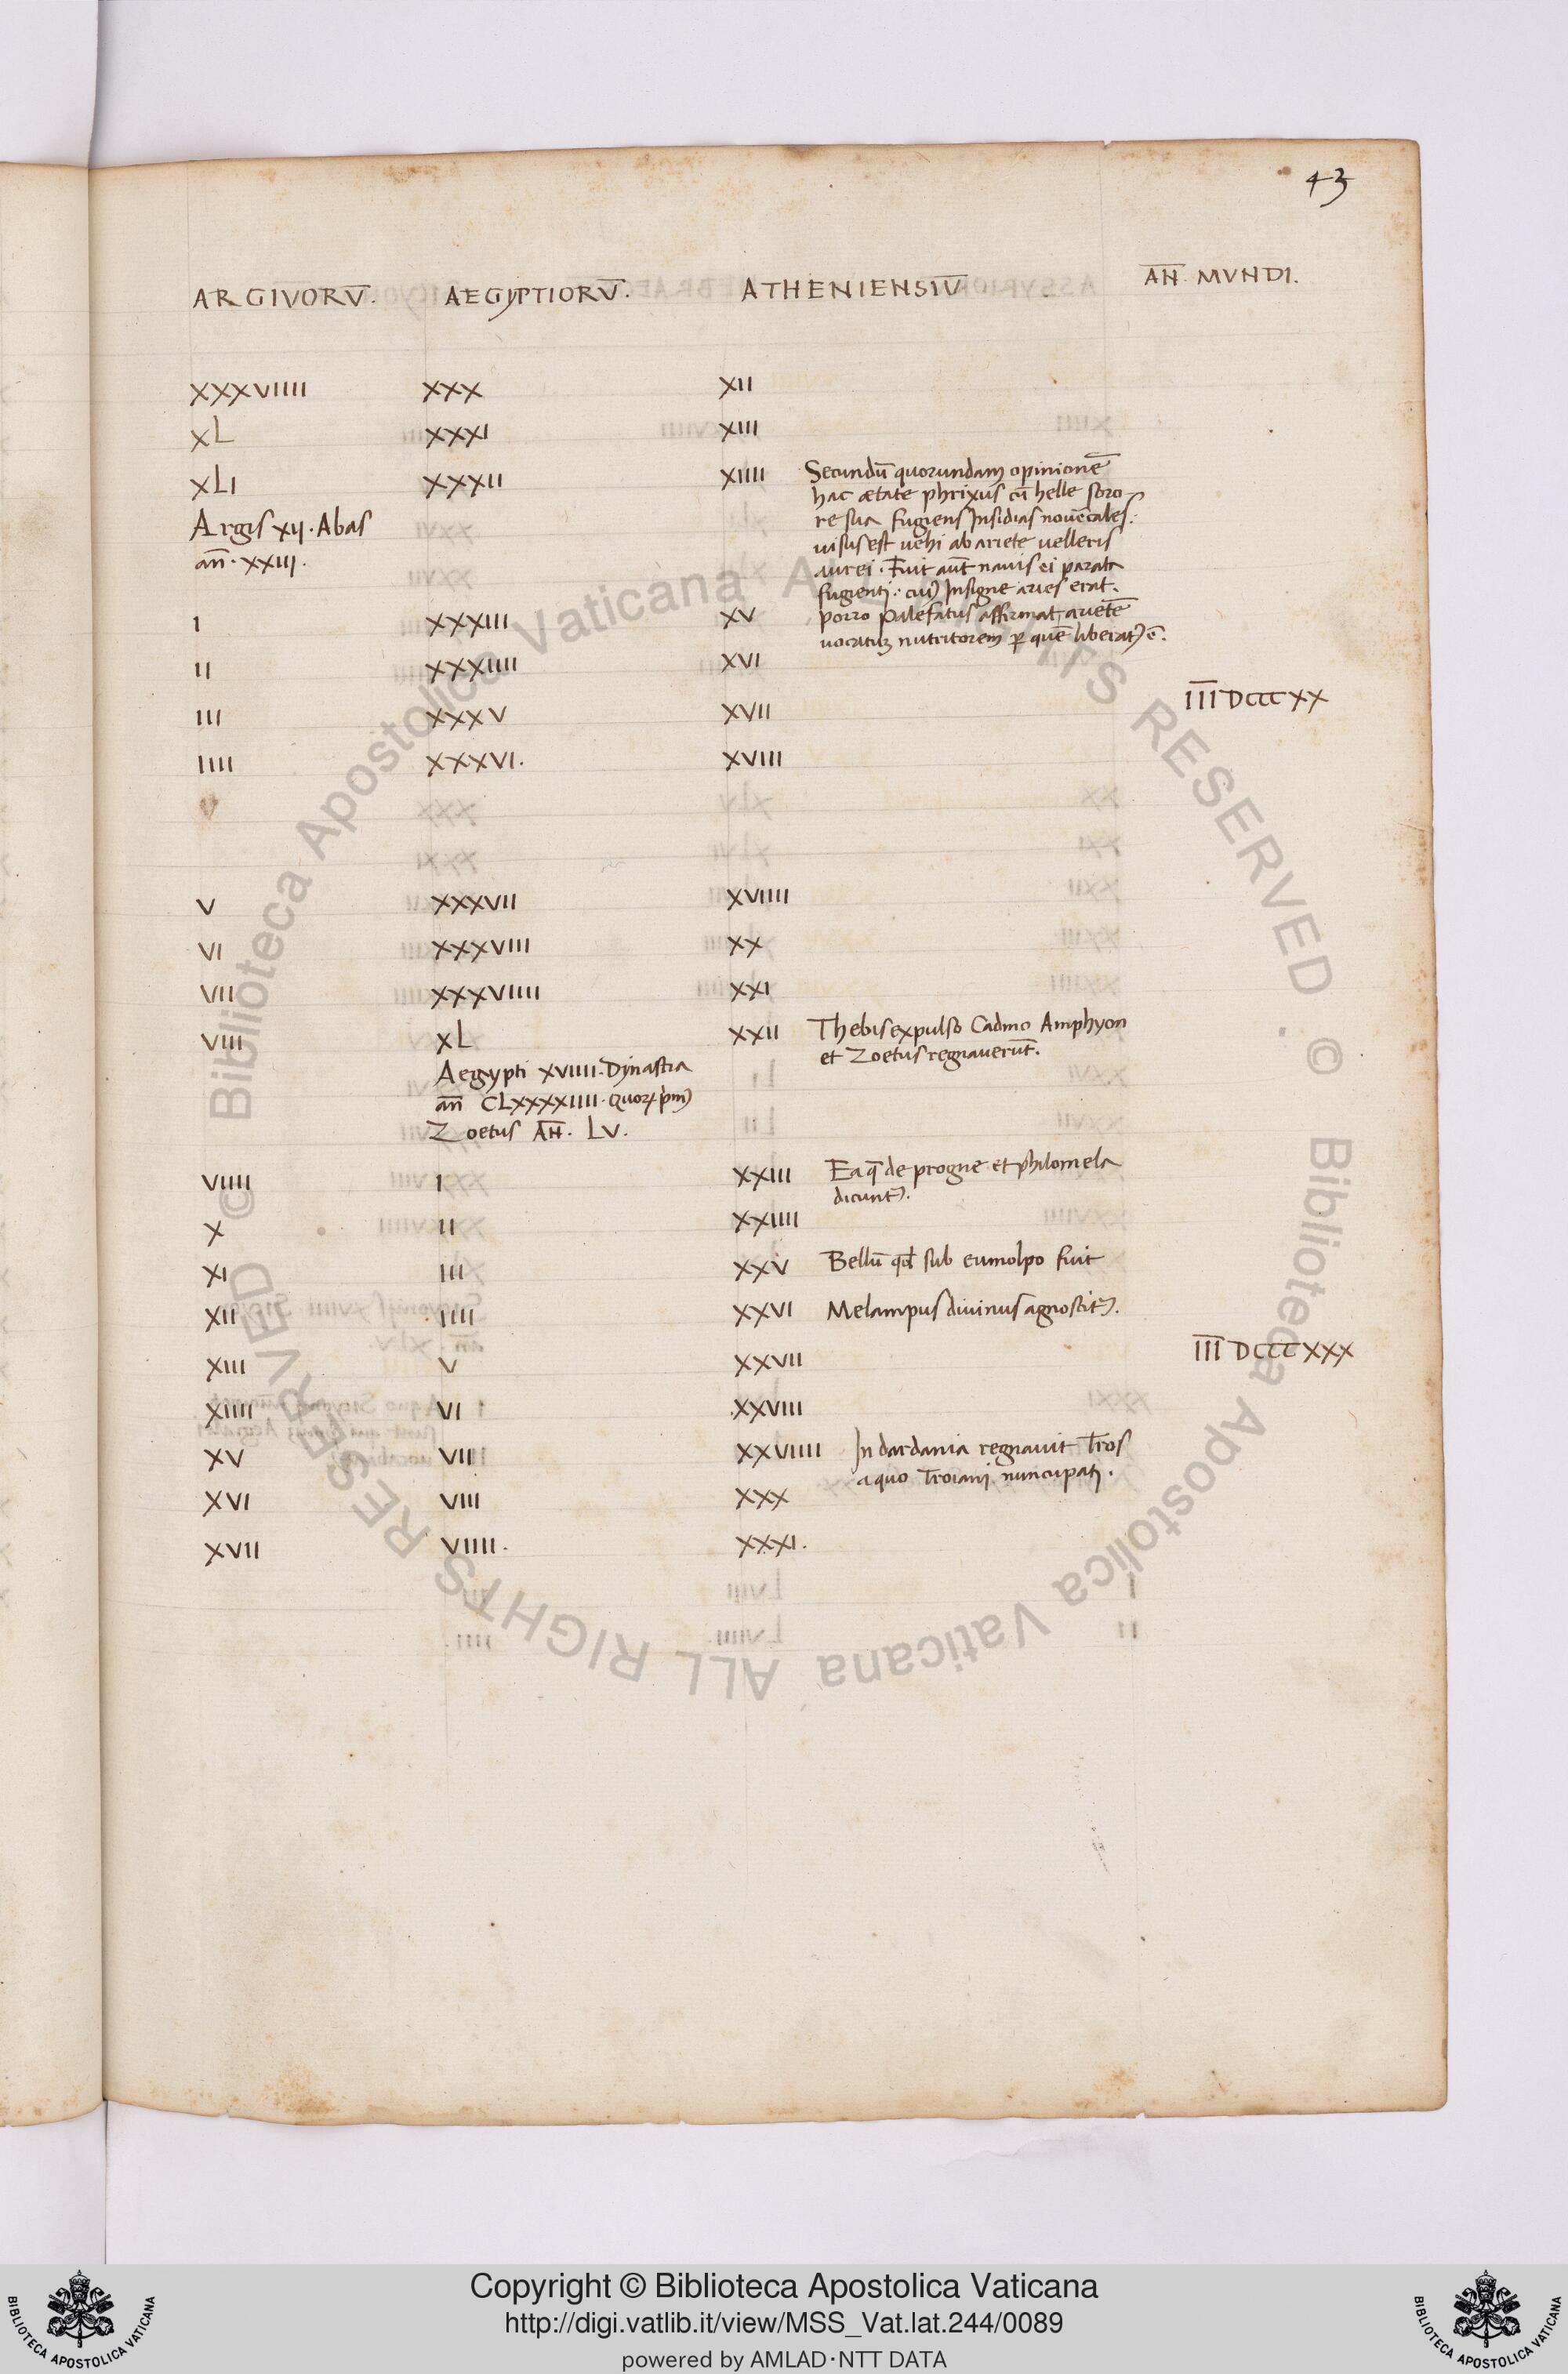 43
ARGIVORV̅. AEGYPTIORV̅. ATHENIENSIV̅ AN̅ MVNDI.
XXXVIIII XXX XII
XL XXXI XIII
XLI XXXII XIIII Secundū quorundam opinionē
hac ætate phrixus cū helle soro-
Argis XII. Abas re sua fugiens Insidias nouercales:
uisus est uehi ab ariete uelleris
an̄. XXIII. aurei. Fuit aūt nauis ei parata
fugienti: cuiꝰ Insigne aries erat.
I XXXIII XV porro palefatus affirmat, arietē
uocatum nutritorem ꝑ quē liberatꝰ ē.
II XXXIIII XVI
I̅I̅I̅ DCCCXX
III XXXV XVII
IIII XXXVI. XVIII
V
V XXXVII XVIIII
VI XXXVIII XX
VII XXXVIIII XXI
VIII XL XXII Thebis expulso Cadmo Amphyon
et Zoetus regnauerūt.
Aegypti XVIIII. Dynastia
an̄ CLXXXXIIII. quoꝝ pmꝰ
Zoetus AN̅. LV.
VIIII I XXIII Ea q̄ de progne et philomela
dicuntꝰ.
X II XXIIII
XI III XXV Bellū qđ sub eumolpo fuit
XII IIII XXVI Melampus diuinus agnoscitꝰ.
I̅I̅I̅ DCCCXXX
XIII V XXVII
XIIII VI XXVIII
XV VII XXVIIII In dardania regnauit Tros
a quo Troiani nuncupati.
XVI VIII XXX
XVII VIIII. XXXI.
© Biblioteca Apostolica Vaticana ALL RIGHTS RESERVED . © Biblioteca Apostolica Vaticana ALL RIGHTS RESERVED
Copyright © Biblioteca Apostolica Vaticana
http://digi.vatlib.it/view/MSS_Vat.lat.244/0089
powered by AMLAD·NTT DATA
BIBLIOTECA APOSTOLICA VATICANA
BIBLIOTECA APOSTOLICA VATICANA